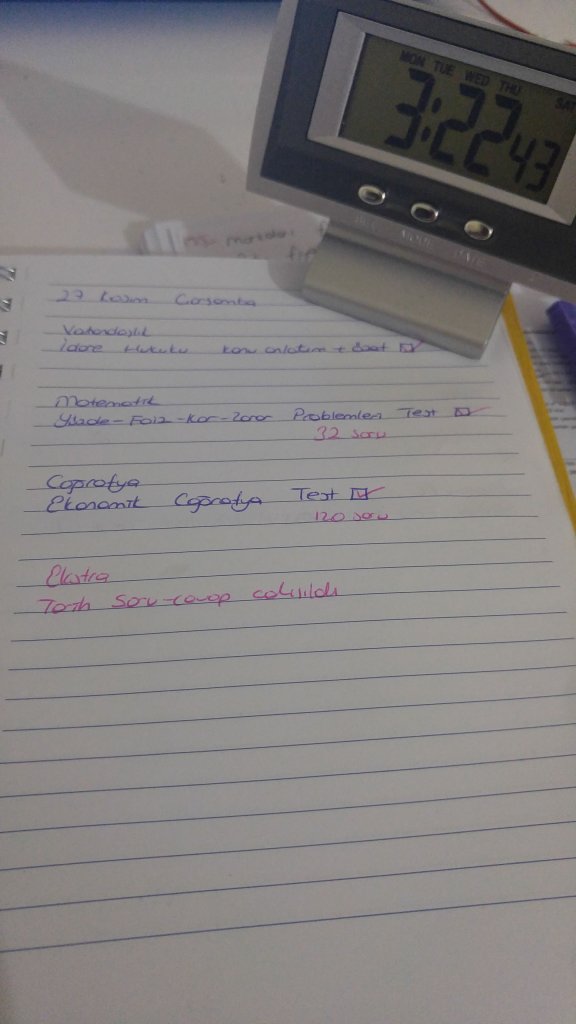 MON TUE WED THU SAT
3:22 43
MODE
27 Kasım Çarşamba
Vatandaşlık
İdare Hukuku konu anlatım + Saat
Matematik
Yüzde-Faiz-Kar-Zarar Problemleri Test
32 soru
Coğrafya
Ekonomik Coğrafya Test
120 soru
Ekstra
Tarih Soru-cevap çalışıldı